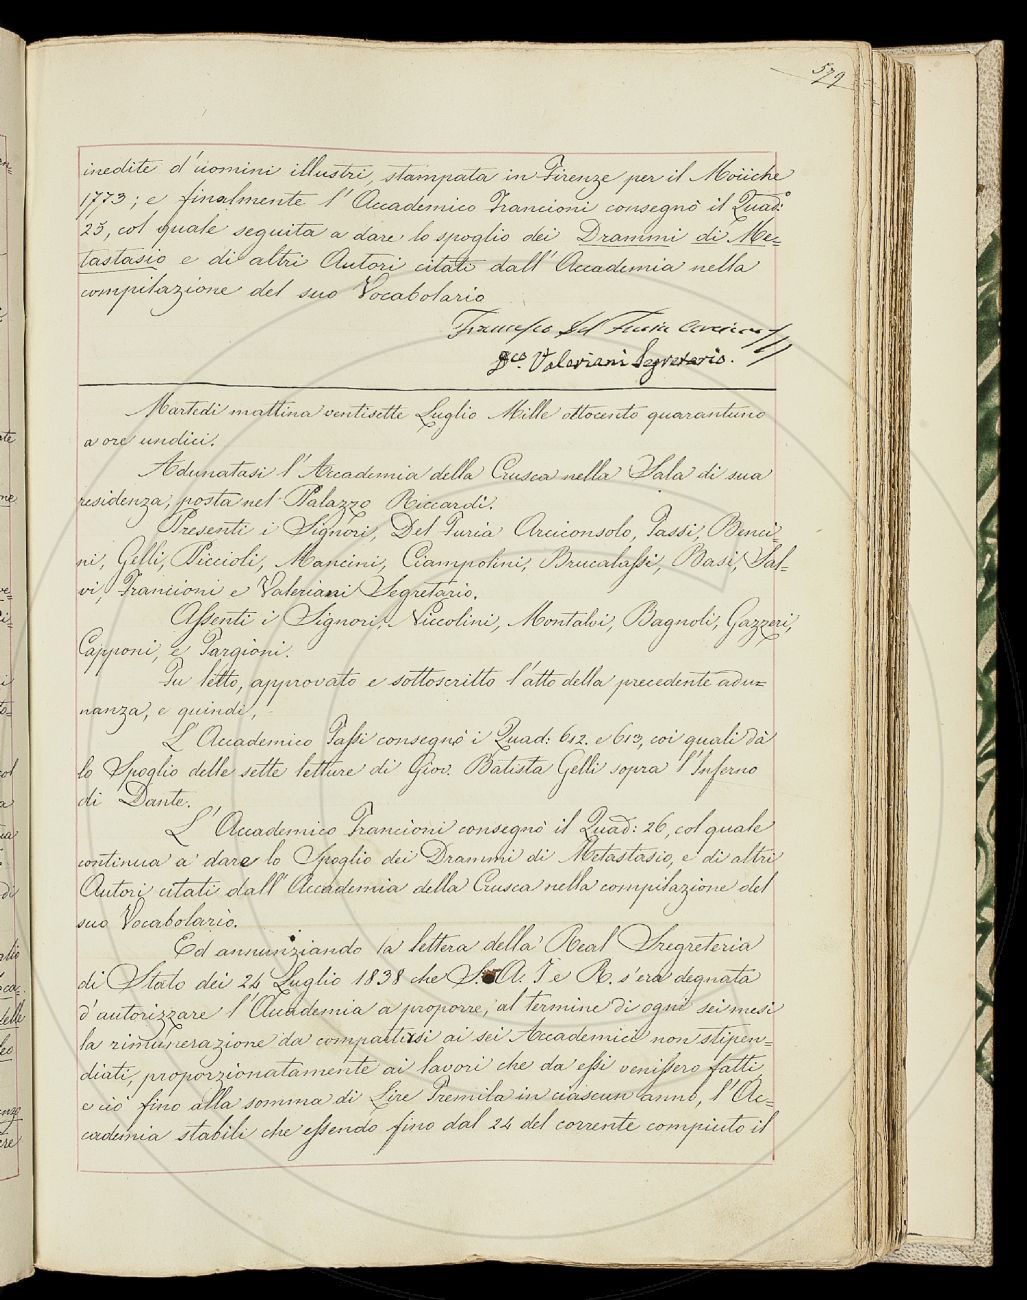 579
inedite d'uomini illustri, stampata in Firenze per il Moüche
1773; e finalmente l'Accademico Francioni consegnò il Quad:º
25, col quale seguita a dare lo spoglio dei Drammi di Me=
tastasio e di altri Autori citati dall'Accademia nella
compilazione del suo Vocabolario
Francesco Del Furia
Dco. Valeriani Segretario.
Martedi mattina ventisette Luglio Mille ottocento quarantuno
a ore undici.
Adunatasi l'Accademia della Crusca nella Sala di sua
residenza, posta nel Palazzo Riccardi.
Presenti i Signori, Del Furia Arciconsolo, Tassi, Benci=
ni, Gelli, Piccioli, Mancini, Ciampolini, Brucalassi, Basi, Sal=
vi, Francioni e Valeriani Segretario.
Assenti i Signori, Niccolini, Montalvi, Bagnoli, Gazzeri,
Capponi, e Targioni.
Fu letto, approvato e sottoscritto l'atto della precedente adu=
nanza, e quindi,
L'Accademico Tassi consegnò i Quad: 612. e 613, coi quali dà
lo Spoglio delle sette letture di Giov. Batista Gelli sopra l'Inferno
di Dante.
L'Accademico Francioni consegnò il Quad: 26, col quale
continua a dare lo Spoglio dei Drammi di Metastasio, e di altri
Autori citati dall'Accademia della Crusca nella compilazione del
suo Vocabolario.
Ed annunziando la lettera della Real Sregreteria
di Stato dei 24 Luglio 1838 che S. A. I e R. s'era degnata
d'autorizzare l'Accademia a proporre, al termine di ogni sei mesi
la rimunerazione da compartirsi ai sei Accademici non stipen=
diati, proporzionatamente ai lavori che da essi venissero fatti,
e ciò fino alla somma di Lire Tremila in ciascun anno, l'Ac=
cademia stabilì che essendo fino dal 24 del corrente compiuto il